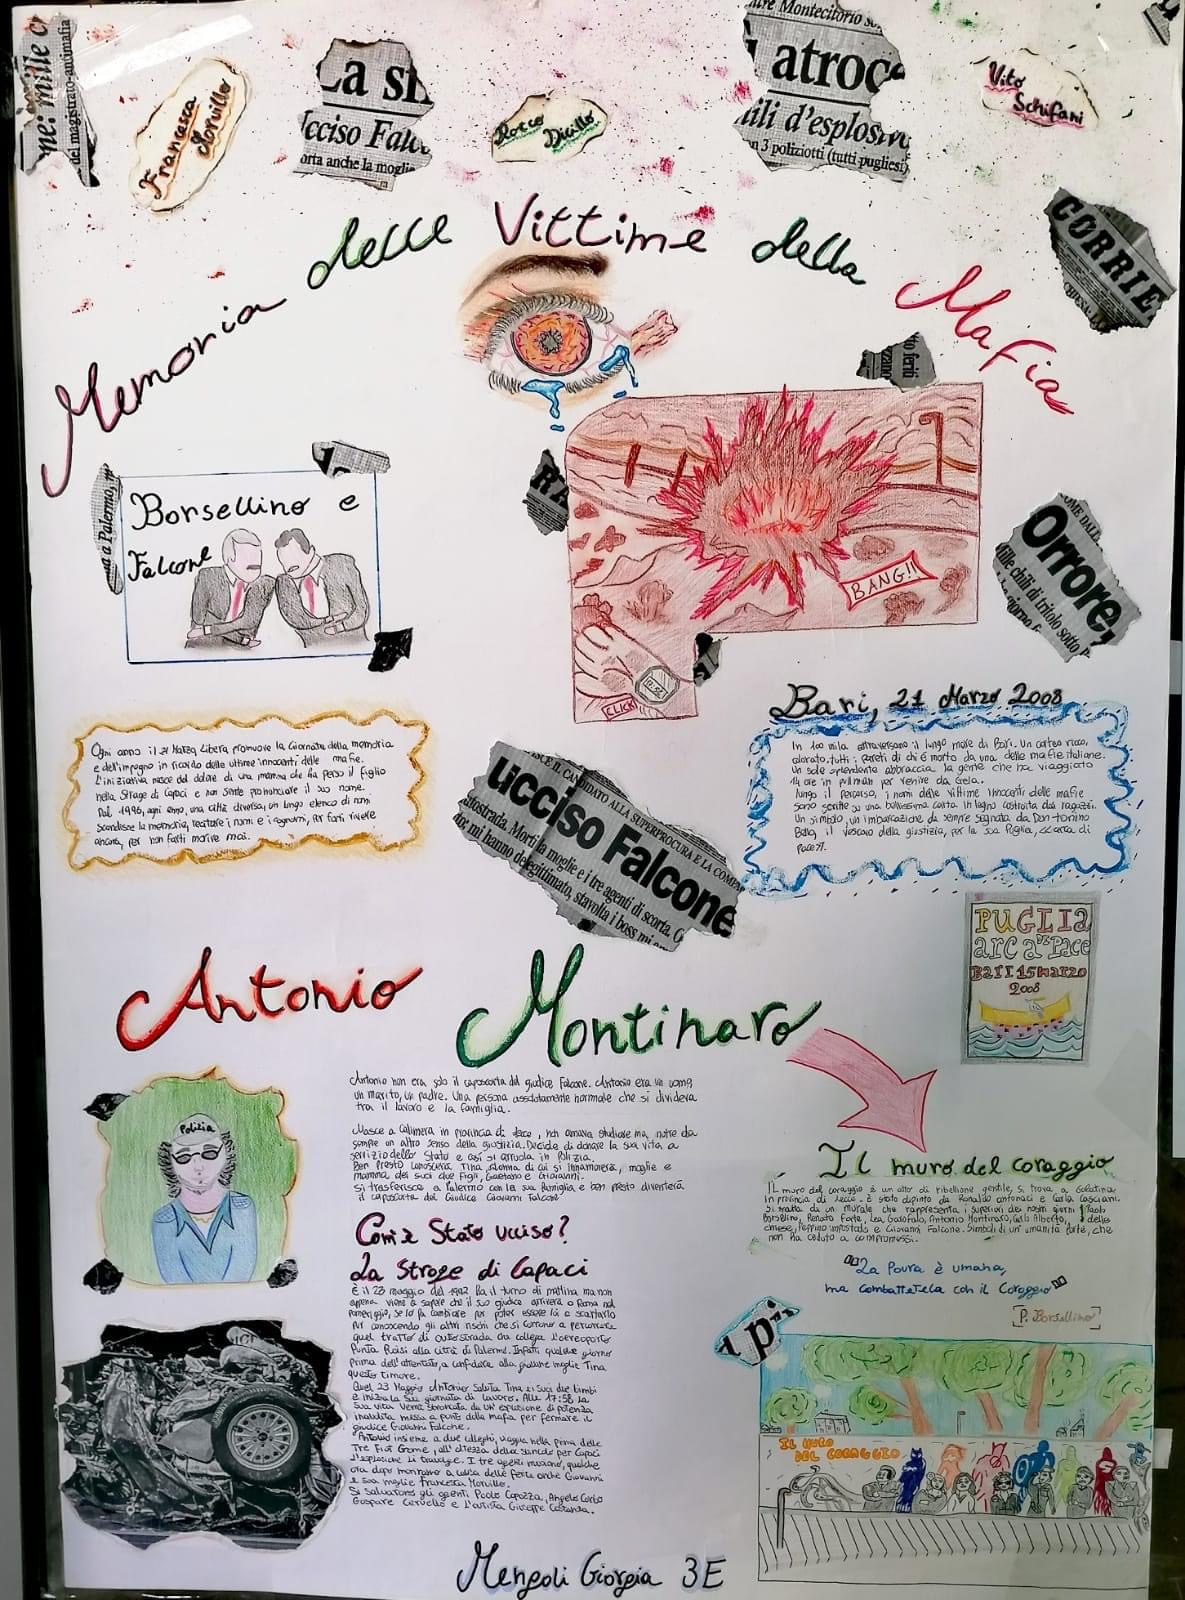 ne: mille c
del magistrato-antimafia
Francesca
Morvillo
La st
Ucciso Falc
orta anche la moglie
Rocco
Dicillo
tre Montecitorio
atroc
ili d'esplosivo
n 3 poliziotti (tutti pugliesi)
Vito
Schifani
CORRIE
Memoria delle Vittime della Mafia
Borsellino e
Falcone
a a Palermo,
RA
BANG!!
CLICK
17:56
OME DALL
Orrore,
mille chili di tritolo sotto
Ogni anno il 21 Marzo, Libera promuove la Giornata della memoria
e dell'impegno in ricordo delle vittime innocenti delle mafie.
L'iniziativa nasce dal dolore di una mamma che ha perso il figlio
nella Strage di Capaci e non sente pronunciare il suo nome.
Dal 1996, ogni anno, una città diversa, un lungo elenco di nomi
scandisce la memoria, recitare i nomi e i cognomi, per farli rivere
ancora, per non farli morire mai.
Bari, 21 Marzo 2008
In 100 mila attraversano il lungo mare di Bari. Un corteo ricco,
colorato, tutti i parenti di chi è morto da una delle mafie italiane.
Un sole splendente abbraccia la gente che ha viaggiato
14 ore in pullman per venire da Gela.
Lungo il percorso, i nomi delle vittime innocenti delle mafie
sono scritte su una bellissima carta in legno costruita dai ragazzi.
Un simbolo, un'imbarcazione da sempre segnata da Don Tonino
Bello, il vescovo della giustizia, per la sua Puglia, <<arca di
pace>>.
CE IL CANDIDATO ALLA SUPERPROCURA E LA COMPA
ucciso Falcone
autostrada. Morti la moglie e i tre agenti di scorta.
mi hanno delegittimato, stavolta i boss mi
PUGLIA
arca di Pace
Bari 15 marzo
2008
Antonio Montinaro
Antonio non era solo il caposcorta del giudice Falcone. Antonio era un uomo,
un marito, un padre. Una persona assolutamente normale che si divideva
tra il lavoro e la famiglia.
Nasce a Calimera in provincia di Lecce, non amava studiare ma, nutre da
sempre un altro senso della giustizia. Decide di donare la sua vita a
servizio dello Stato e così si arruola in Polizia.
Ben presto conoscerà Tina, donna di cui si innamorerà, moglie e
mamma dei suoi due figli, Gaetano e Giovanni.
Si trasferisce a Palermo con la sua famiglia e ben presto diventerà
il caposcorta del Giudice Giovanni Falcone
Polizia
Com'è Stato ucciso?
La Strage di Capaci
È il 23 maggio del 1992 ha il turno di mattina ma non
appena viene a sapere che il suo giudice arriverà a Roma nel
pomeriggio, se lo fa cambiare per poter essere lui a scortarlo
pur conoscendo gli altri rischi che si corrono a percorrere
quel tratto di autostrada che collega l'aereoporto
Punta Raisi alla città di Palermo. Infatti qualche giorno
prima dell'attentato, a confidare alla giovane moglie Tina
questo timore.
Quel 23 Maggio Antonio saluta Tina e i suoi due bimbi
e inizia la sua giornata di lavoro. Alle 17:58 la
sua vita verrà stroncata da un'esplosione di potenza
inaudita messa a punto dalla mafia per fermare il
giudice Giovanni Falcone.
Antonio insieme a due colleghi, viaggia nella prima delle
Tre Fiat Crome, all'altezza dello svincolo per Capaci
l'esplosione li travolge. I tre agenti muoiono, qualche
ora dopo moriranno a causa delle ferite anche Giovanni
e sua moglie Francesca Morvillo.
Si salvarono gli agenti Paolo Capuzza, Angelo Corbo
Gaspare Cervello e l'autista Giuseppe Costanza.
Il muro del coraggio
Il muro del coraggio è un atto di ribellione gentile, si trova a Galatina
in provincia di Lecce. È stato dipinto da
Si tratta di un murale che rappresenta i superiori dei nostri giorni: Paolo
Borsellino, Renata Forte, Lea Garofalo, Antonio Montinaro, Carlo Alberto, dalla
chiesa, Peppino Impastato e Giovanni Falcone. Simboli di un'umanità forte, che
non ha ceduto a compromessi.
"La Paura è umana,
ma combattetela con il Coraggio"
[P. Borsellino]
IL MURO
DEL CORAGGIO
Mengoli Giorgia 3E